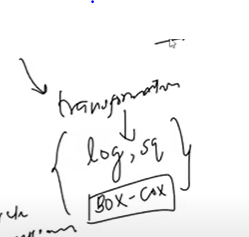 transformation
log, sq
BOX-COX